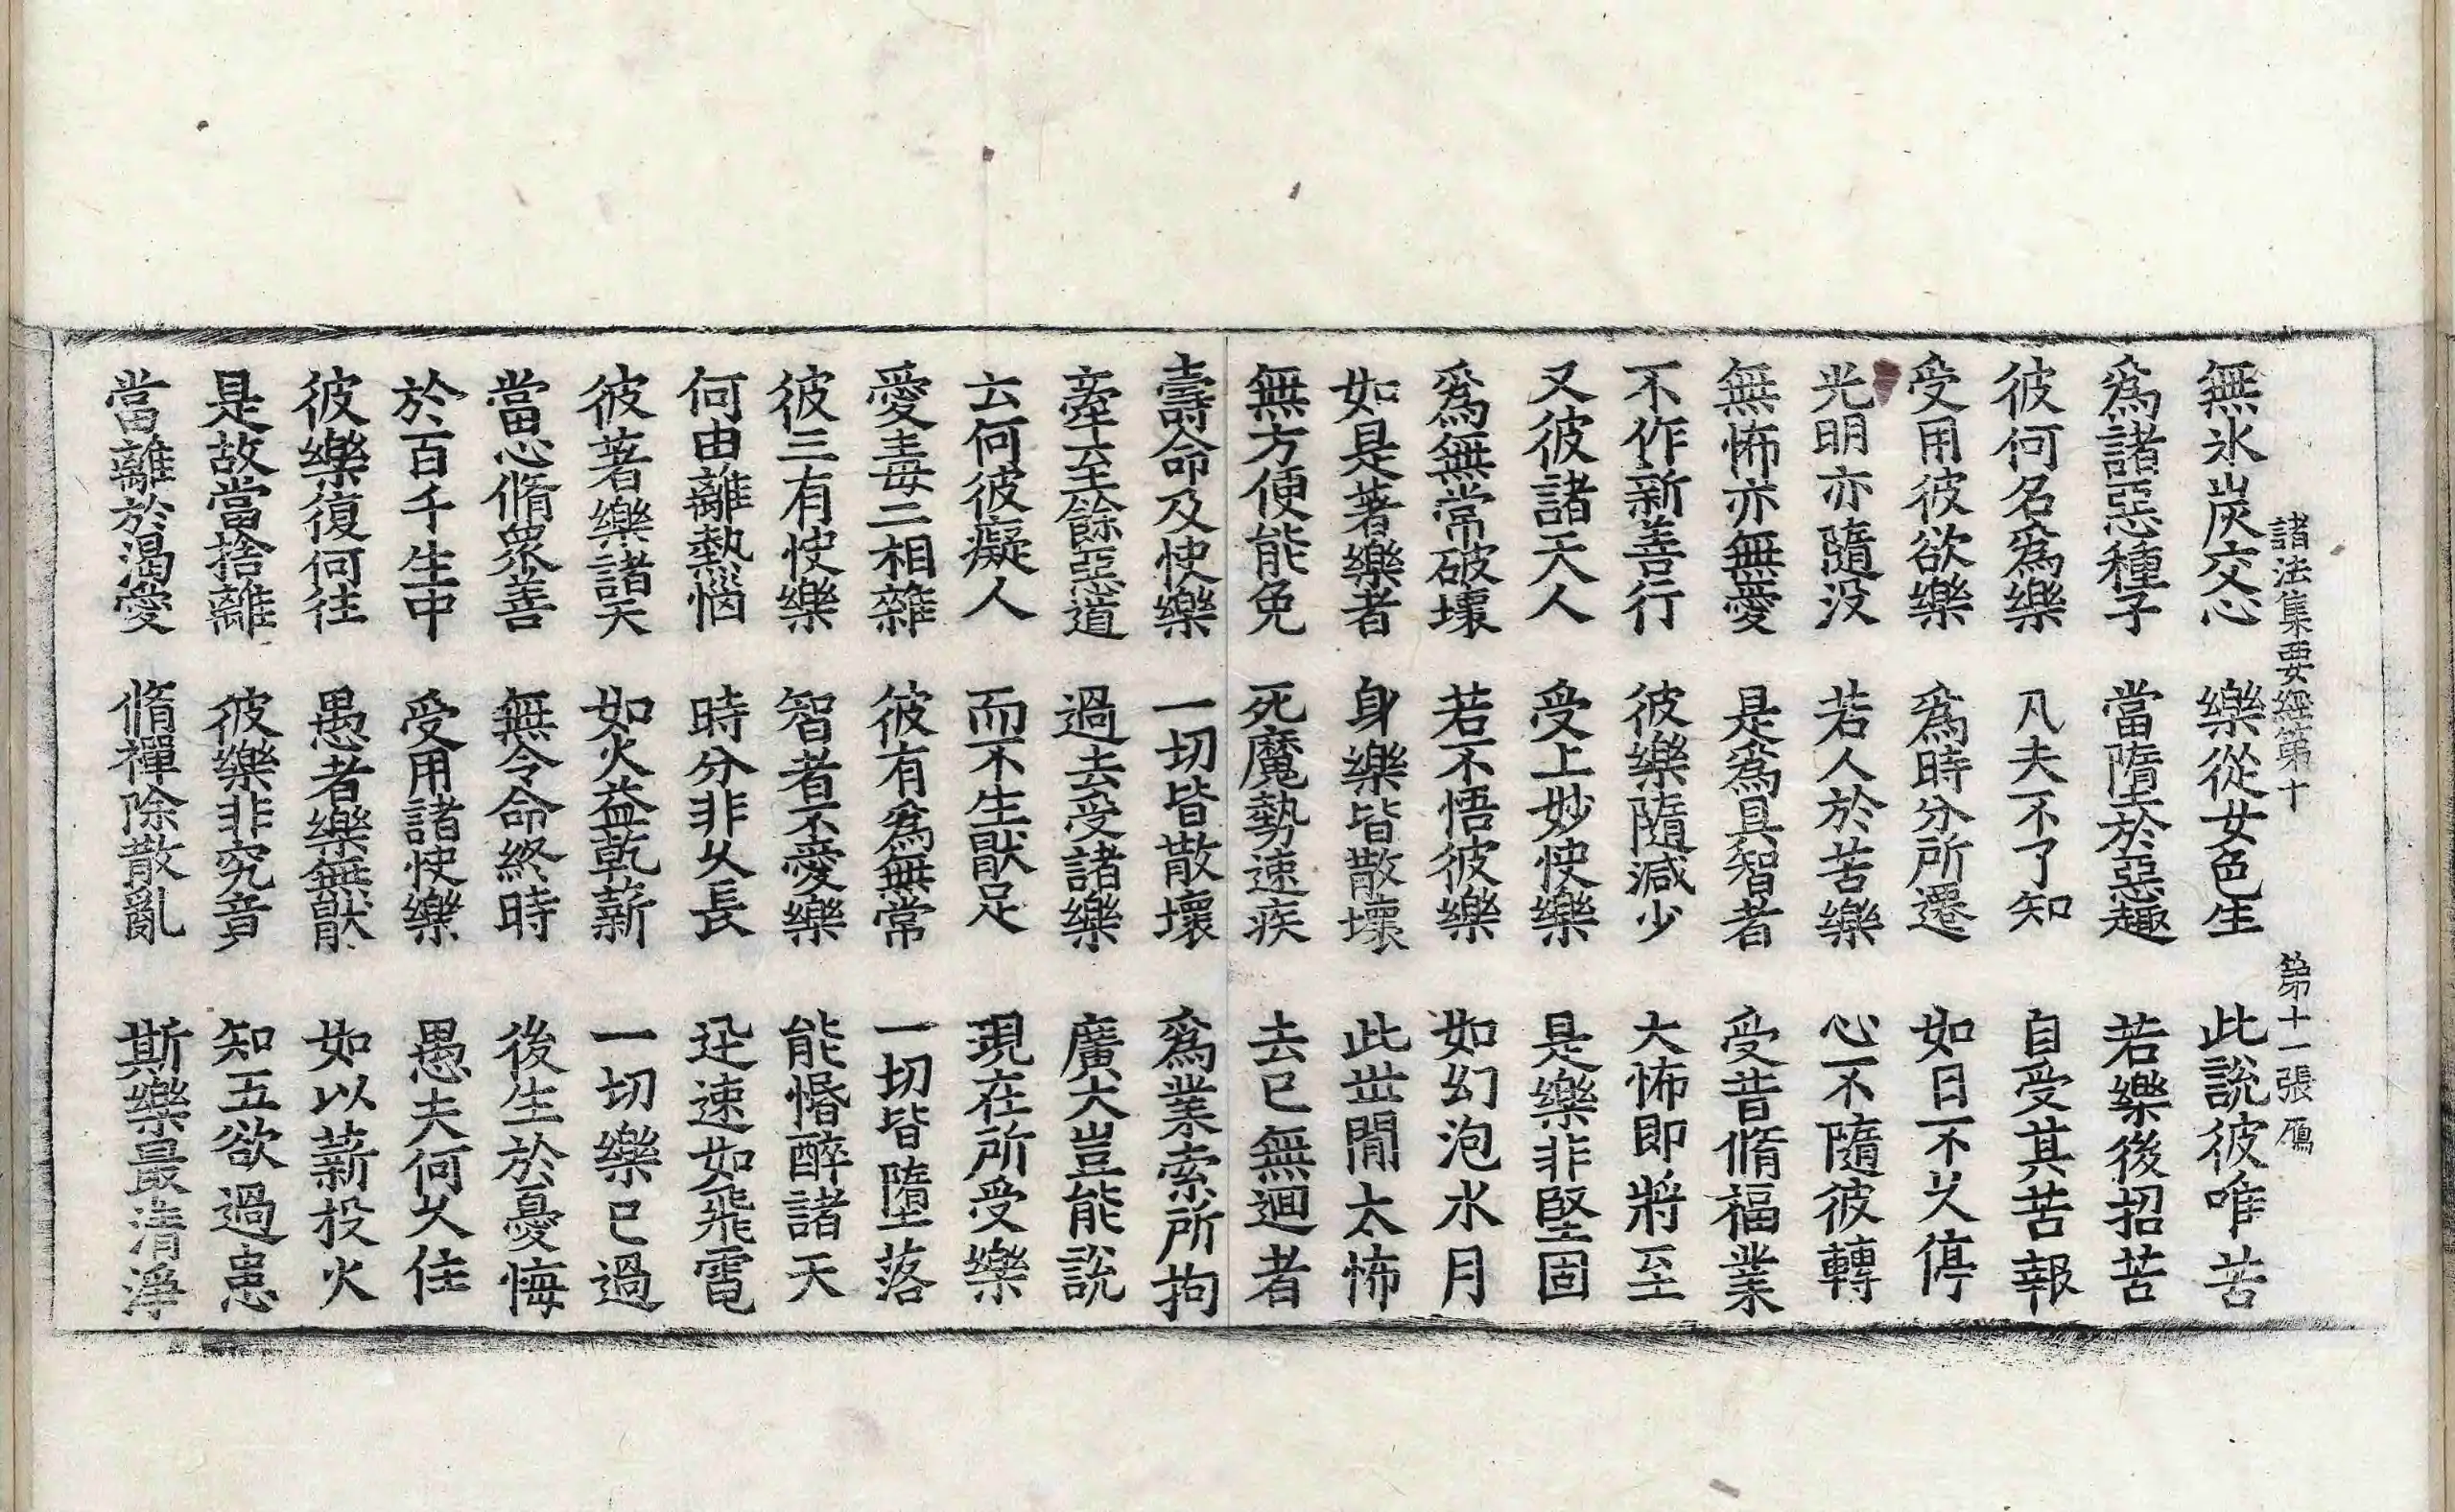 諸法集要經第十　第十一張　鴈
無氷炭交心　樂從女色生　此說彼唯苦
爲諸惡種子　當墮於惡趣　若樂後招苦
彼何名爲樂　凡夫不了知　自受其苦報
受用彼欲樂　爲時分所遷　如日不久停
光明亦隨没　若人於苦樂　心不隨彼轉
無怖亦無愛　是爲具智者　受昔脩福業
不作新善行　彼樂隨減少　大怖即將至
又彼諸天人　受上妙快樂　是樂非堅固
爲無常破壞　若不悟彼樂　如幻泡水月
如是著樂者　身樂皆散壞　此世間太怖
無方便能免　死魔勢速疾　去已無迴者
壽命及快樂　一切皆散壞　爲業索所拘
牽至餘惡道　過去受諸樂　廣大豈能說
云何彼癡人　而不生猒足　現在所受樂
愛毒二相雜　彼有爲無常　一切皆墮落
彼三有快樂　智者不愛樂　能惛醉諸天
何由離熱惱　時分非久長　迅速如飛電
彼著樂諸天　如火益乾薪　一切樂已過
當心脩眾善　無令命終時　後生於憂悔
於百千生中　受用諸快樂　愚夫何久住
彼樂復何往　愚者樂無猒　如以薪投火
是故當捨離　彼樂非究竟　知五欲過患
當離於渴愛　脩禪除散亂　斯樂最清淨